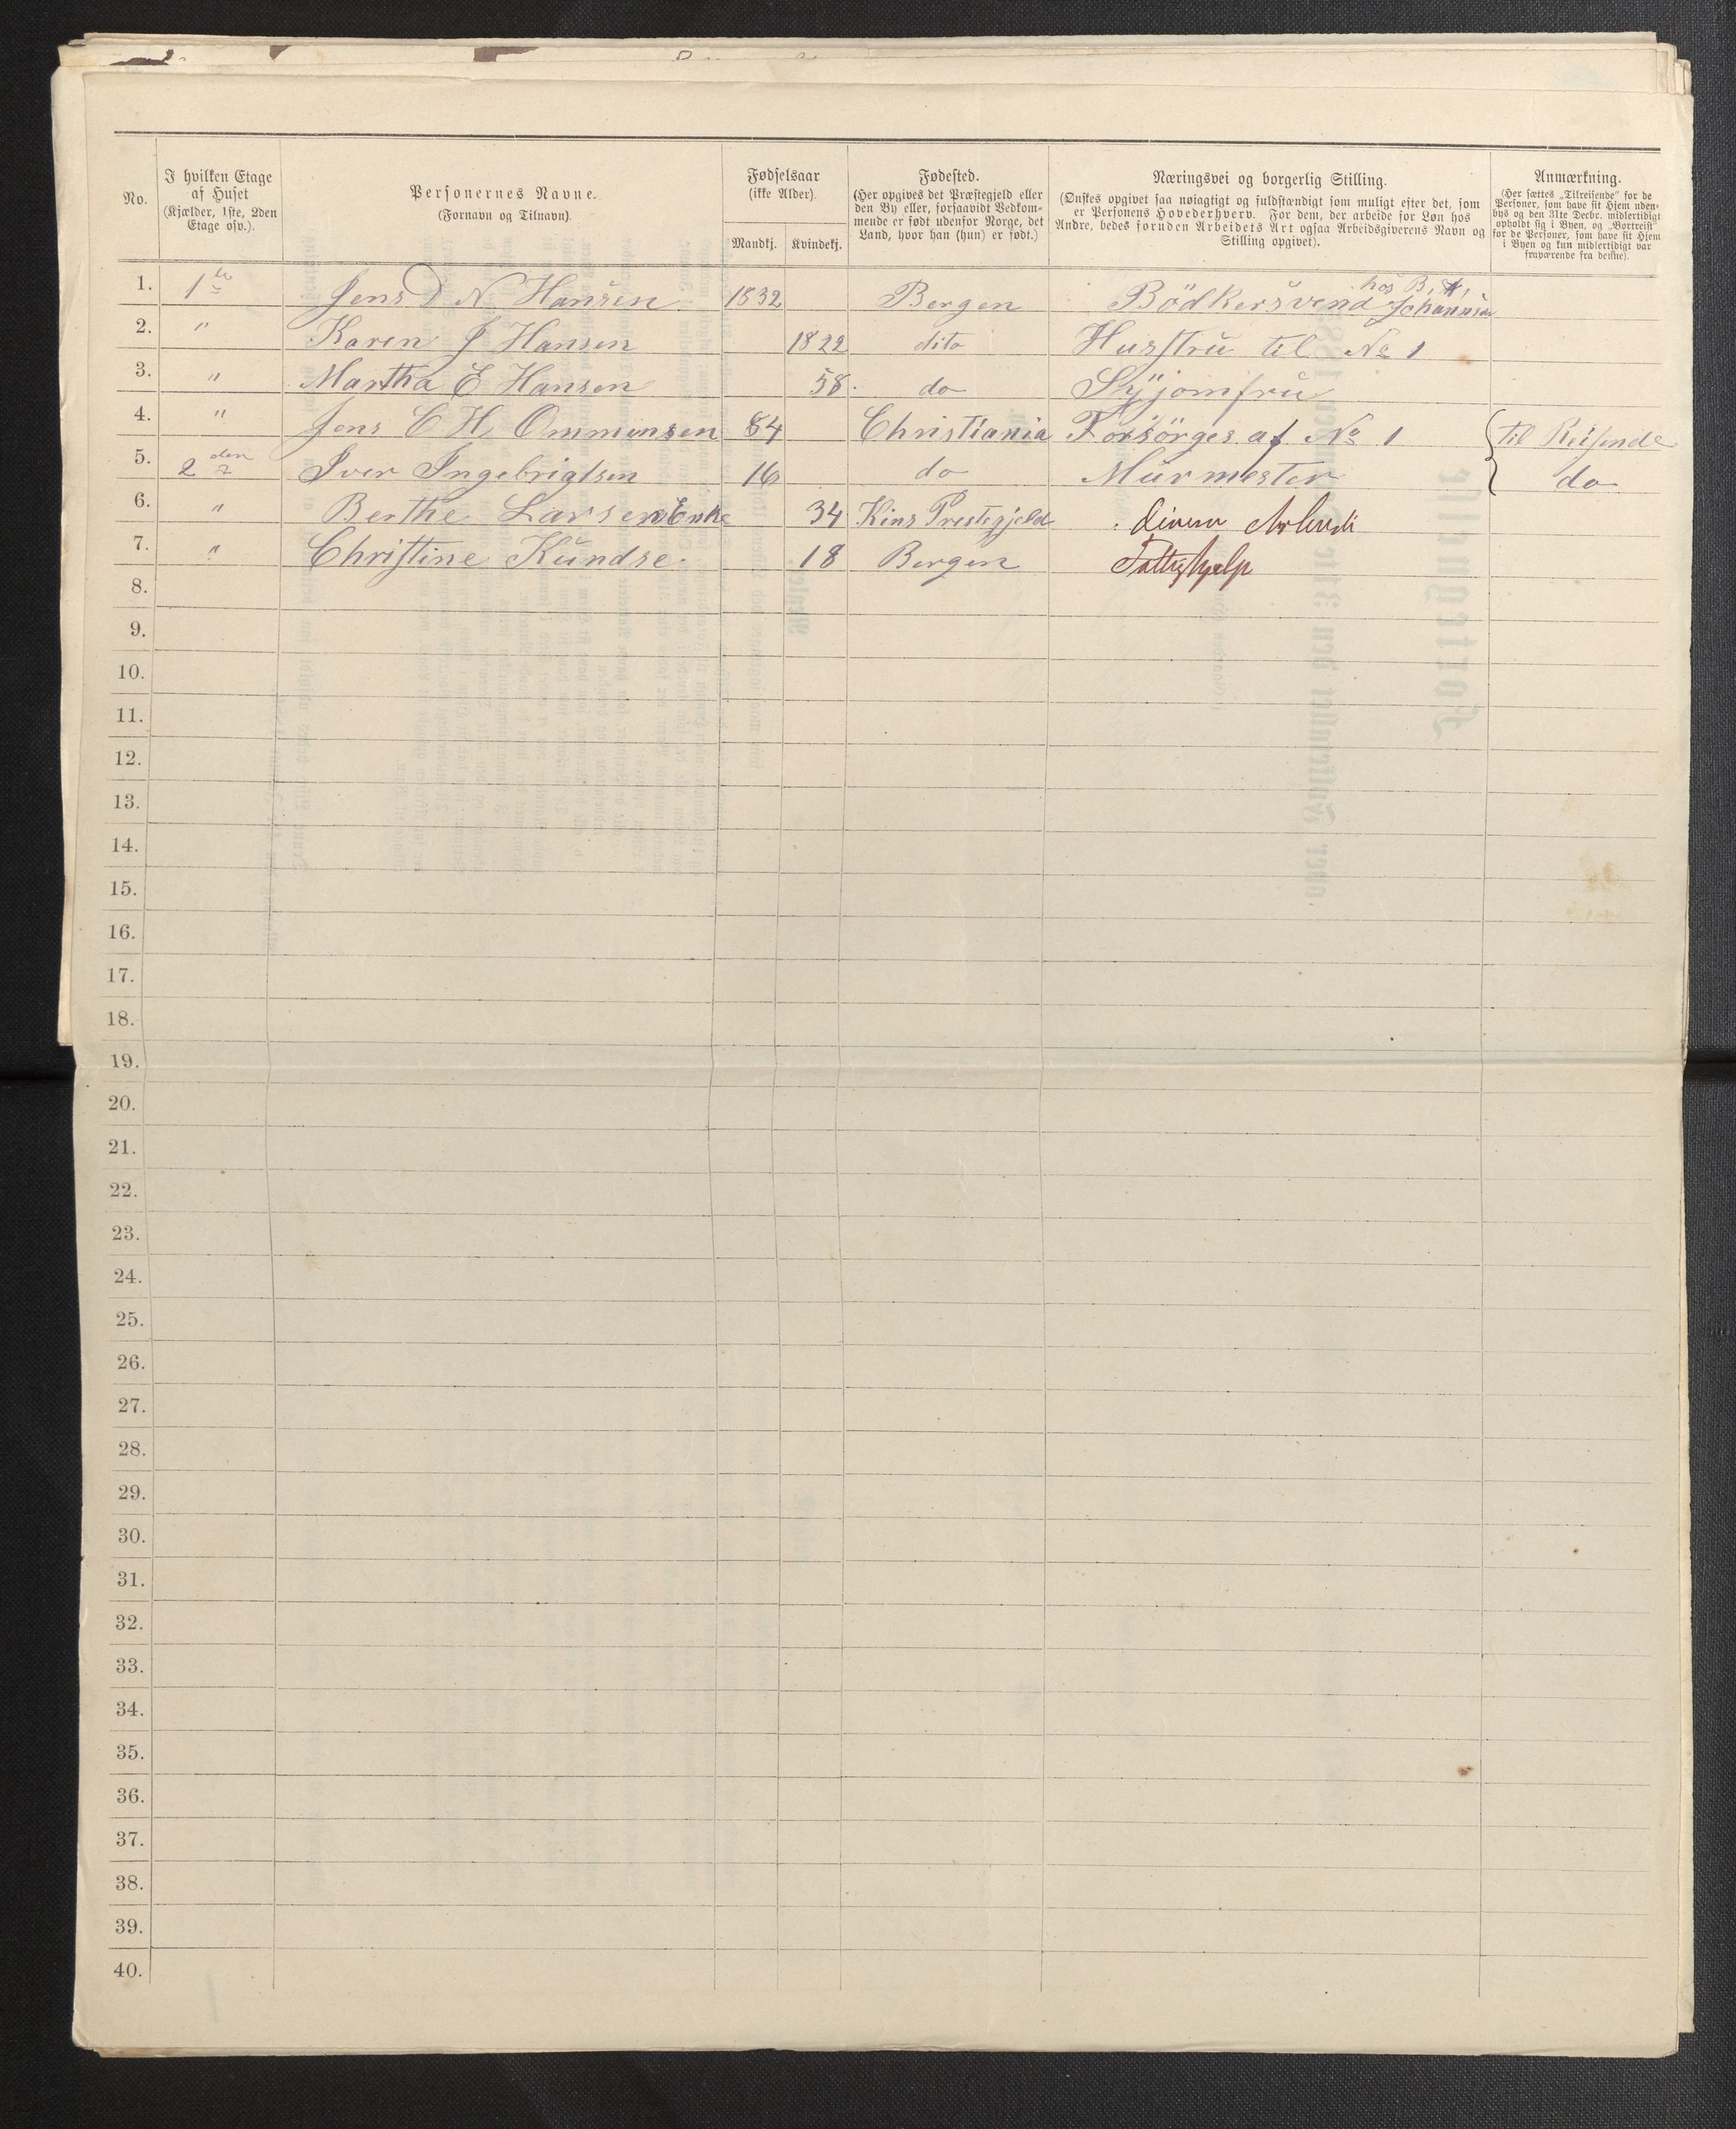 No.
I hvilken Etage af Huset (Kjælder, 1ste, 2den Etage osv.).
Personernes Navne. (Fornavn og Tilnavn).
Fødselsaar (ikke Alder).
Mandkj. Kvindekj.
Fødested. (Her opgives det Præstegjeld eller den By eller, forsaavidt Vedkommende er født udenfor Norge, det Land, hvor han (hun) er født.)
Næringsvei og borgerlig Stilling. (Ønskes opgivet saa nøiagtigt og fuldstændigt som muligt efter det, som er Personens Hovederhverv. For dem, der arbeide for Løn hos Andre, bedes foruden Arbeidets Art ogsaa Arbeidsgiverens Navn og Stilling opgivet).
Anmærkning. (Her sættes „Tilreisende" for de Personer, som have sit Hjem udenbys og den 31te Decbr. midlertidigt opholdt sig i Byen, og „Bortreist" for de Personer, som have sit Hjem i Byen og kun midlertidigt var fraværende fra denne).
1. 1ste Jens D N Hansen 1832 Bergen Bödkersvend hos B. Johannsen
2. " Karen J Hansen 1822 dito Husstru til No 1
3. " Martha E Hansen 58. do Syjomfru
4. " Jens C H. Ommensen 84 Christiania Forsörges af No 1 Til Reisende
5. 2den Iver Ingebrigtsen 16 do Murmester do
6. " Berthe Larsen Enke 34 Kins Prestegjeld diverse Arbeide
7. " Christine Kundse. 18 Bergen Fattighjelp
8.
9.
10.
11.
12.
13.
14.
15.
16.
17.
18.
19.
20.
21.
22.
23.
24.
25.
26.
27.
28.
29.
30.
31.
32.
33.
34.
35.
36.
37.
38.
39.
40.